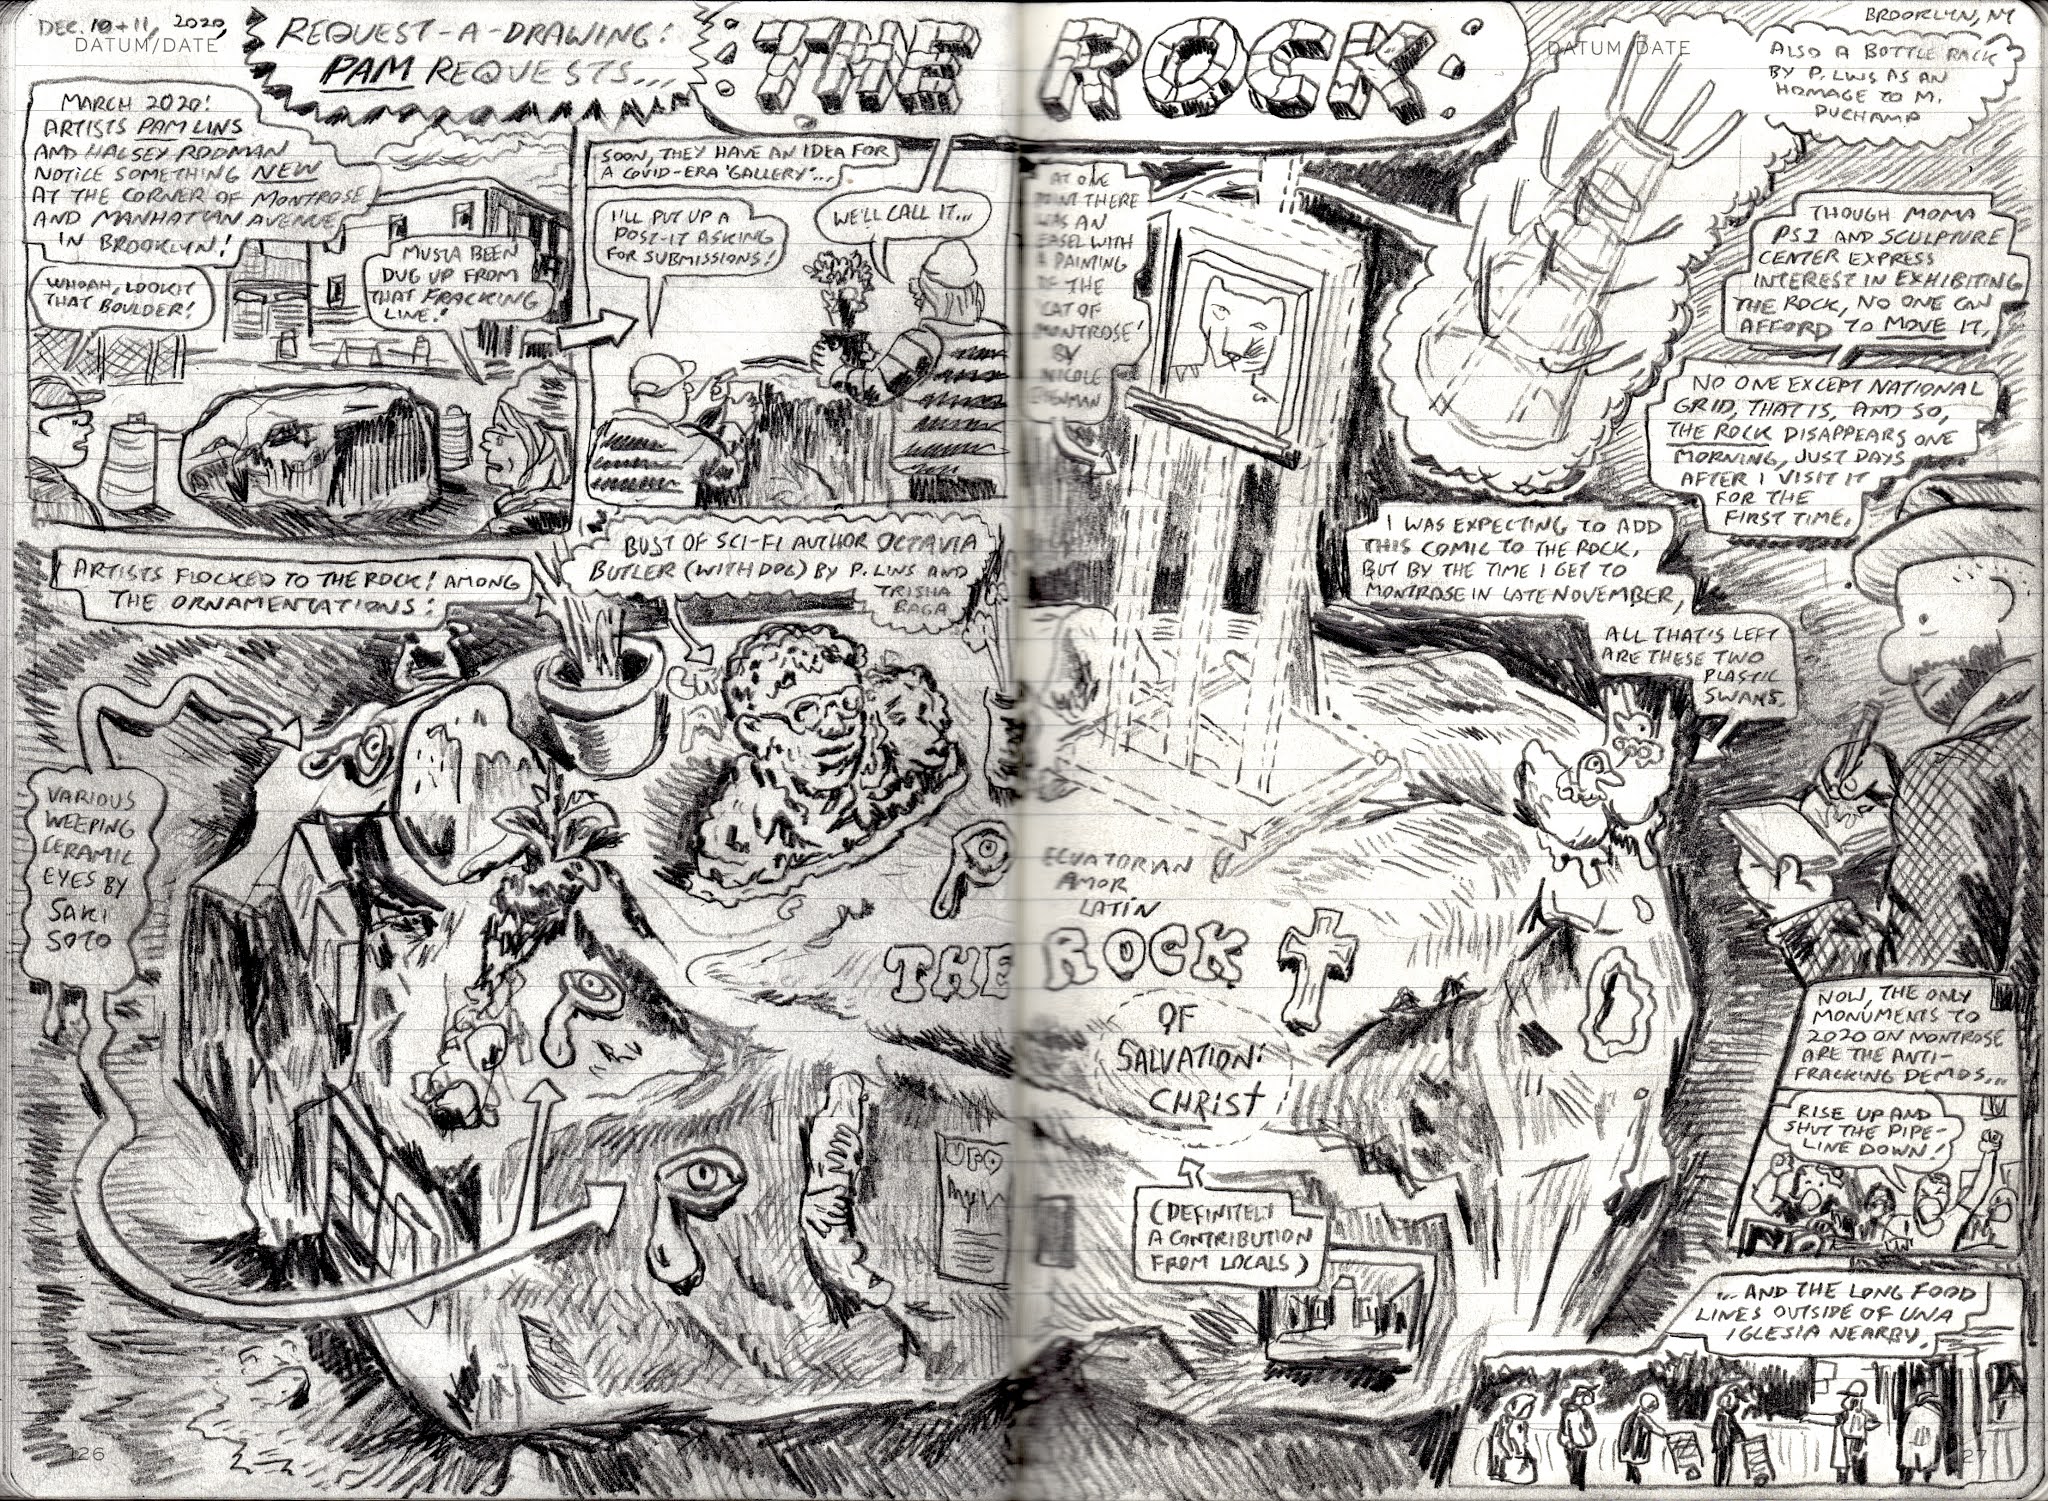 DEC. 10+11, 2020,
DATUM/DATE
REQUEST-A-DRAWING!
PAM REQUESTS...
THE ROCK
DATUM/DATE
BROOKLYN, NY
MARCH 2020:
ARTISTS PAM LINS
AND HALSEY RODMAN
NOTICE SOMETHING NEW
AT THE CORNER OF MONTROSE
AND MANHATTAN AVENUE
IN BROOKLYN!
WHOAH, LOOKIT
THAT BOULDER!
MUSTA BEEN
DUG UP FROM
THAT FRACKING
LINE!
SOON, THEY HAVE AN IDEA FOR
A COVID-ERA 'GALLERY'...
I'LL PUT UP A
POST-IT ASKING
FOR SUBMISSIONS!
WE'LL CALL IT...
ARTISTS FLOCKED TO THE ROCK! AMONG
THE ORNAMENTATIONS:
BUST OF SCI-FI AUTHOR OCTAVIA
BUTLER (WITH DOG) BY P. LINS AND
TRISHA
BAGA
VARIOUS
WEEPING
CERAMIC
EYES BY
SAKI
SOTO
AT ONE
POINT THERE
WAS AN
EASEL WITH
A PAINTING
OF THE
'CAT OF
MONTROSE'
BY
NICOLE
EISENMAN
ALSO A BOTTLE RACK
BY P. LINS AS AN
HOMAGE TO M.
DUCHAMP
THOUGH MOMA
PS1 AND SCULPTURE
CENTER EXPRESS
INTEREST IN EXHIBITING
THE ROCK, NO ONE CAN
AFFORD TO MOVE IT.
NO ONE EXCEPT NATIONAL
GRID, THAT IS, AND SO,
THE ROCK DISAPPEARS ONE
MORNING, JUST DAYS
AFTER I VISIT IT
FOR THE
FIRST TIME.
I WAS EXPECTING TO ADD
THIS COMIC TO THE ROCK,
BUT BY THE TIME I GET TO
MONTROSE IN LATE NOVEMBER,
ALL THAT'S LEFT
ARE THESE TWO
PLASTIC
SWANS.
ECUATORIAN
AMOR
LATIN
THE ROCK
OF
SALVATION:
CHRIST
UFO
(DEFINITELY
A CONTRIBUTION
FROM LOCALS)
NOW, THE ONLY
MONUMENTS TO
2020 ON MONTROSE
ARE THE ANTI-
FRACKING DEMOS...
RISE UP AND
SHUT THE PIPE-
LINE DOWN!
...AND THE LONG FOOD
LINES OUTSIDE OF UNA
IGLESIA NEARBY.
126